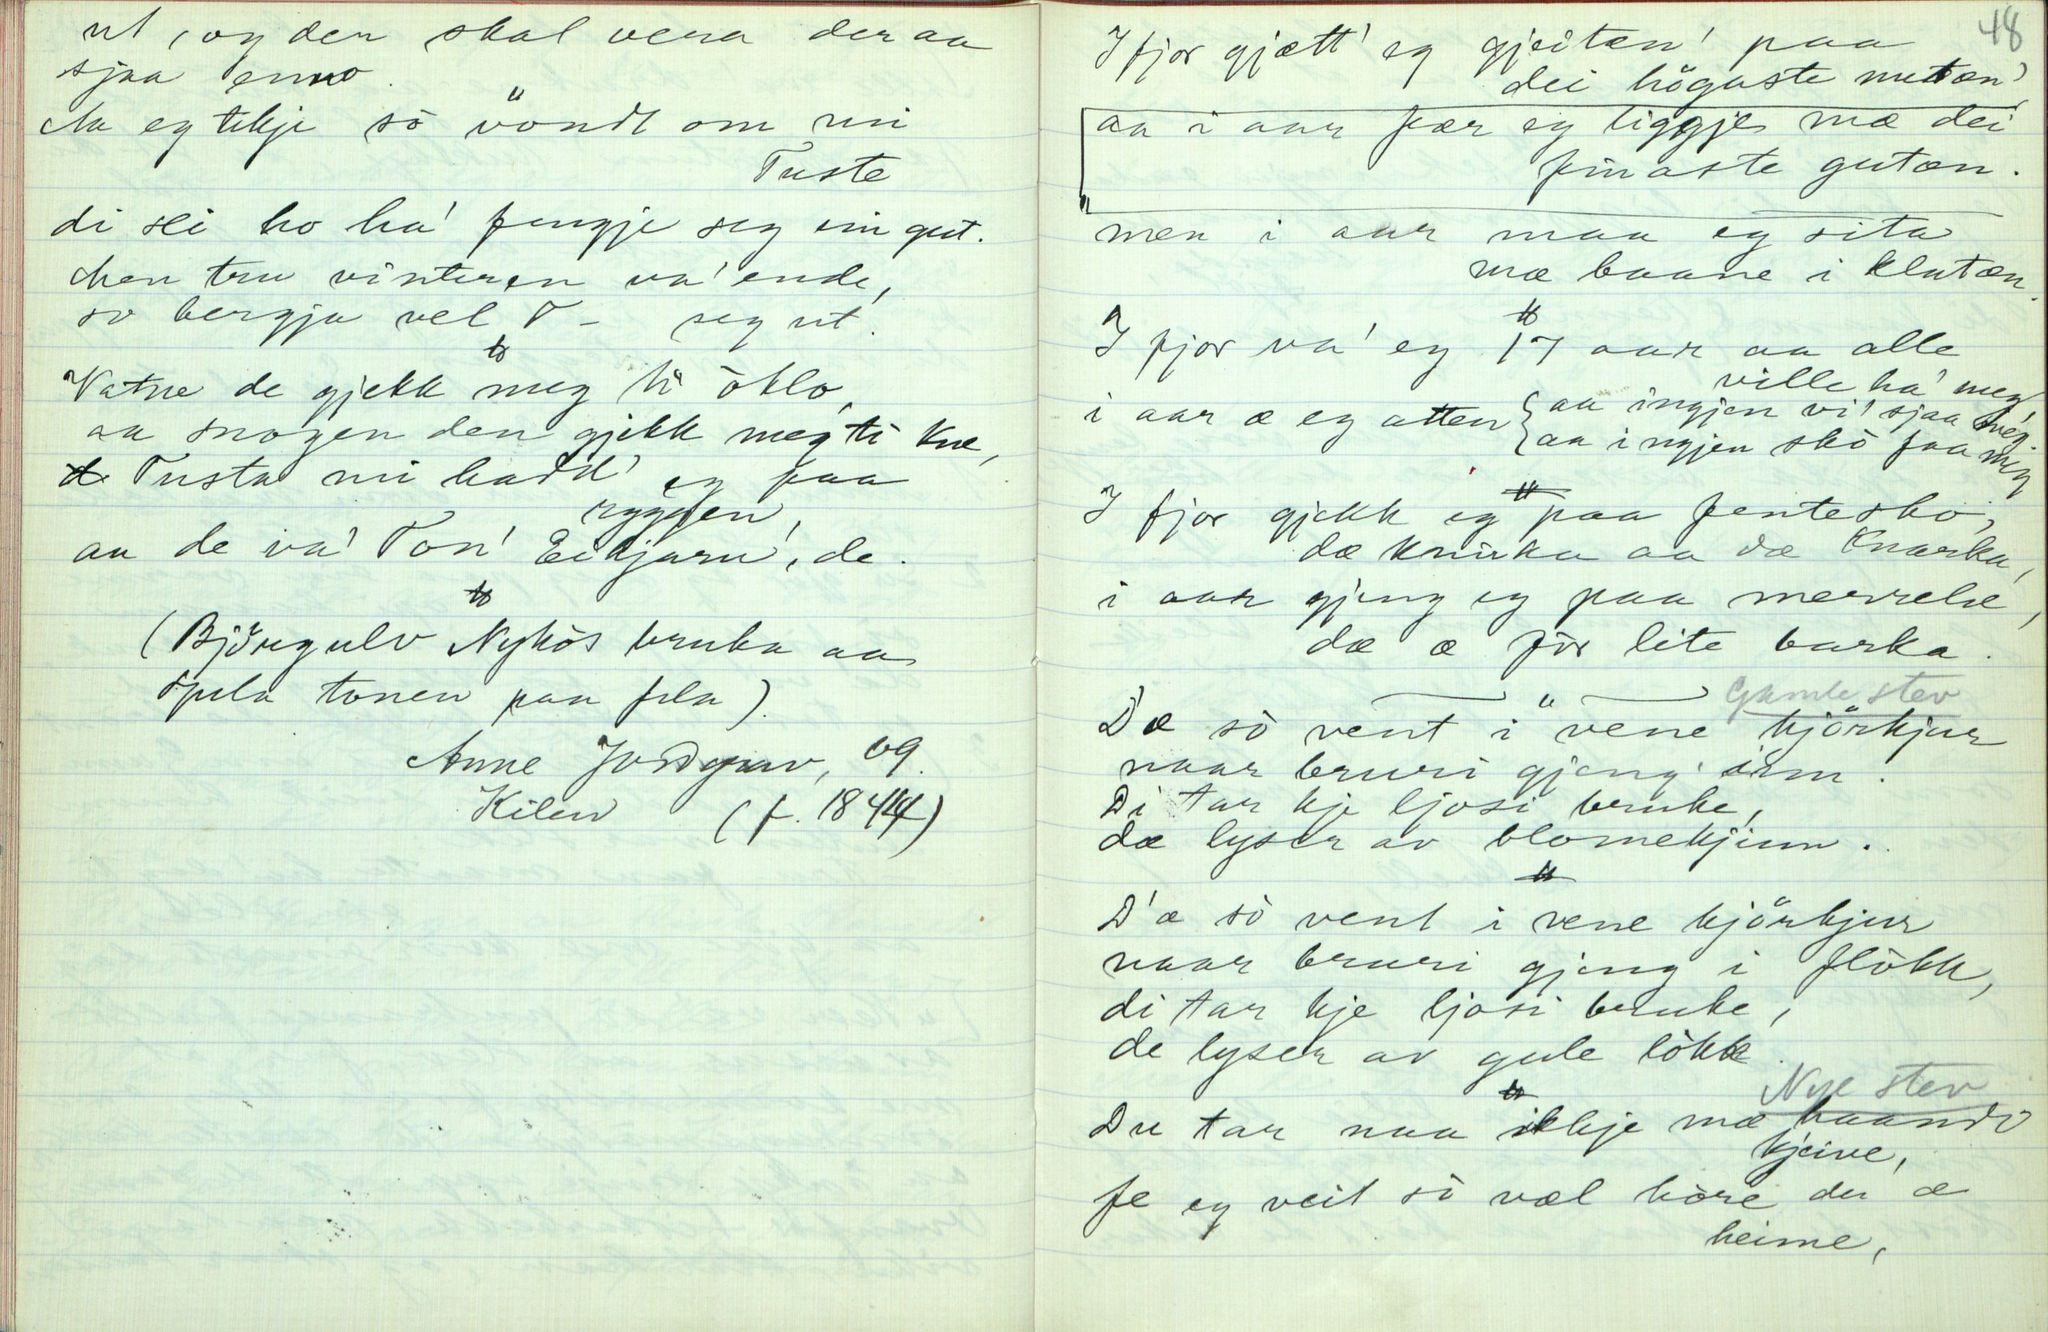 ut, og der skal vera der aa
sjaa enno.
"
Aa eg tikje sò vondt om mi
Tuste
di sei ho ha' fengje seg ein gut.
Men tru vinteren va' ende,
so bergja vel T – seg ut.
"
Vatne de gjekk meg ti òklo,
aa snogen den gjekk meg ti kne,
Tusta mi hadd' eg paa
ryggjen,
aa de va' Ton' Eikjaru', de.
"
(Bjørgulv Nykòs bruka aa
spela tonen paa fela).
Anne Jordgrav, 69.
Kilen (f. 1844)
48
I fjor gjætt' eg gjeitæn' paa
dei högaste nutæn',
aa i aar fær eg liggje mæ dei
finaste gutæn.
"
men i aar maa eg sita
mæ baane i klutæn.
"
I fjor va' eg 17 aar aa alle
ville ha' meg,
i aar æ eg atten { aa ingjen vi' sjaa meg.
aa ingjen skò faa meg
"
I fjor gjekk eg paa jentesko,
dæ knirka aa dæ knarka,
i aar gjeng eg paa merrelæ,
dæ æ för lite barka.
" Gamle stev
D'æ sò vent i vene kjörkjur
naar bruri gjeng inn.
Di tar kje ljosi bruke,
dæ lyser av blomekjinn.
"
D'æ sò vent i vene kjörkjur
naar bruri gjeng i flòkk,
di tar kje ljosi bruke,
de lyser av gule lòkk.
" Nye stev
Du tar naa ikkje mæ haandò
kjeive,
fe eg veit sò væl hòre du æ
heime,